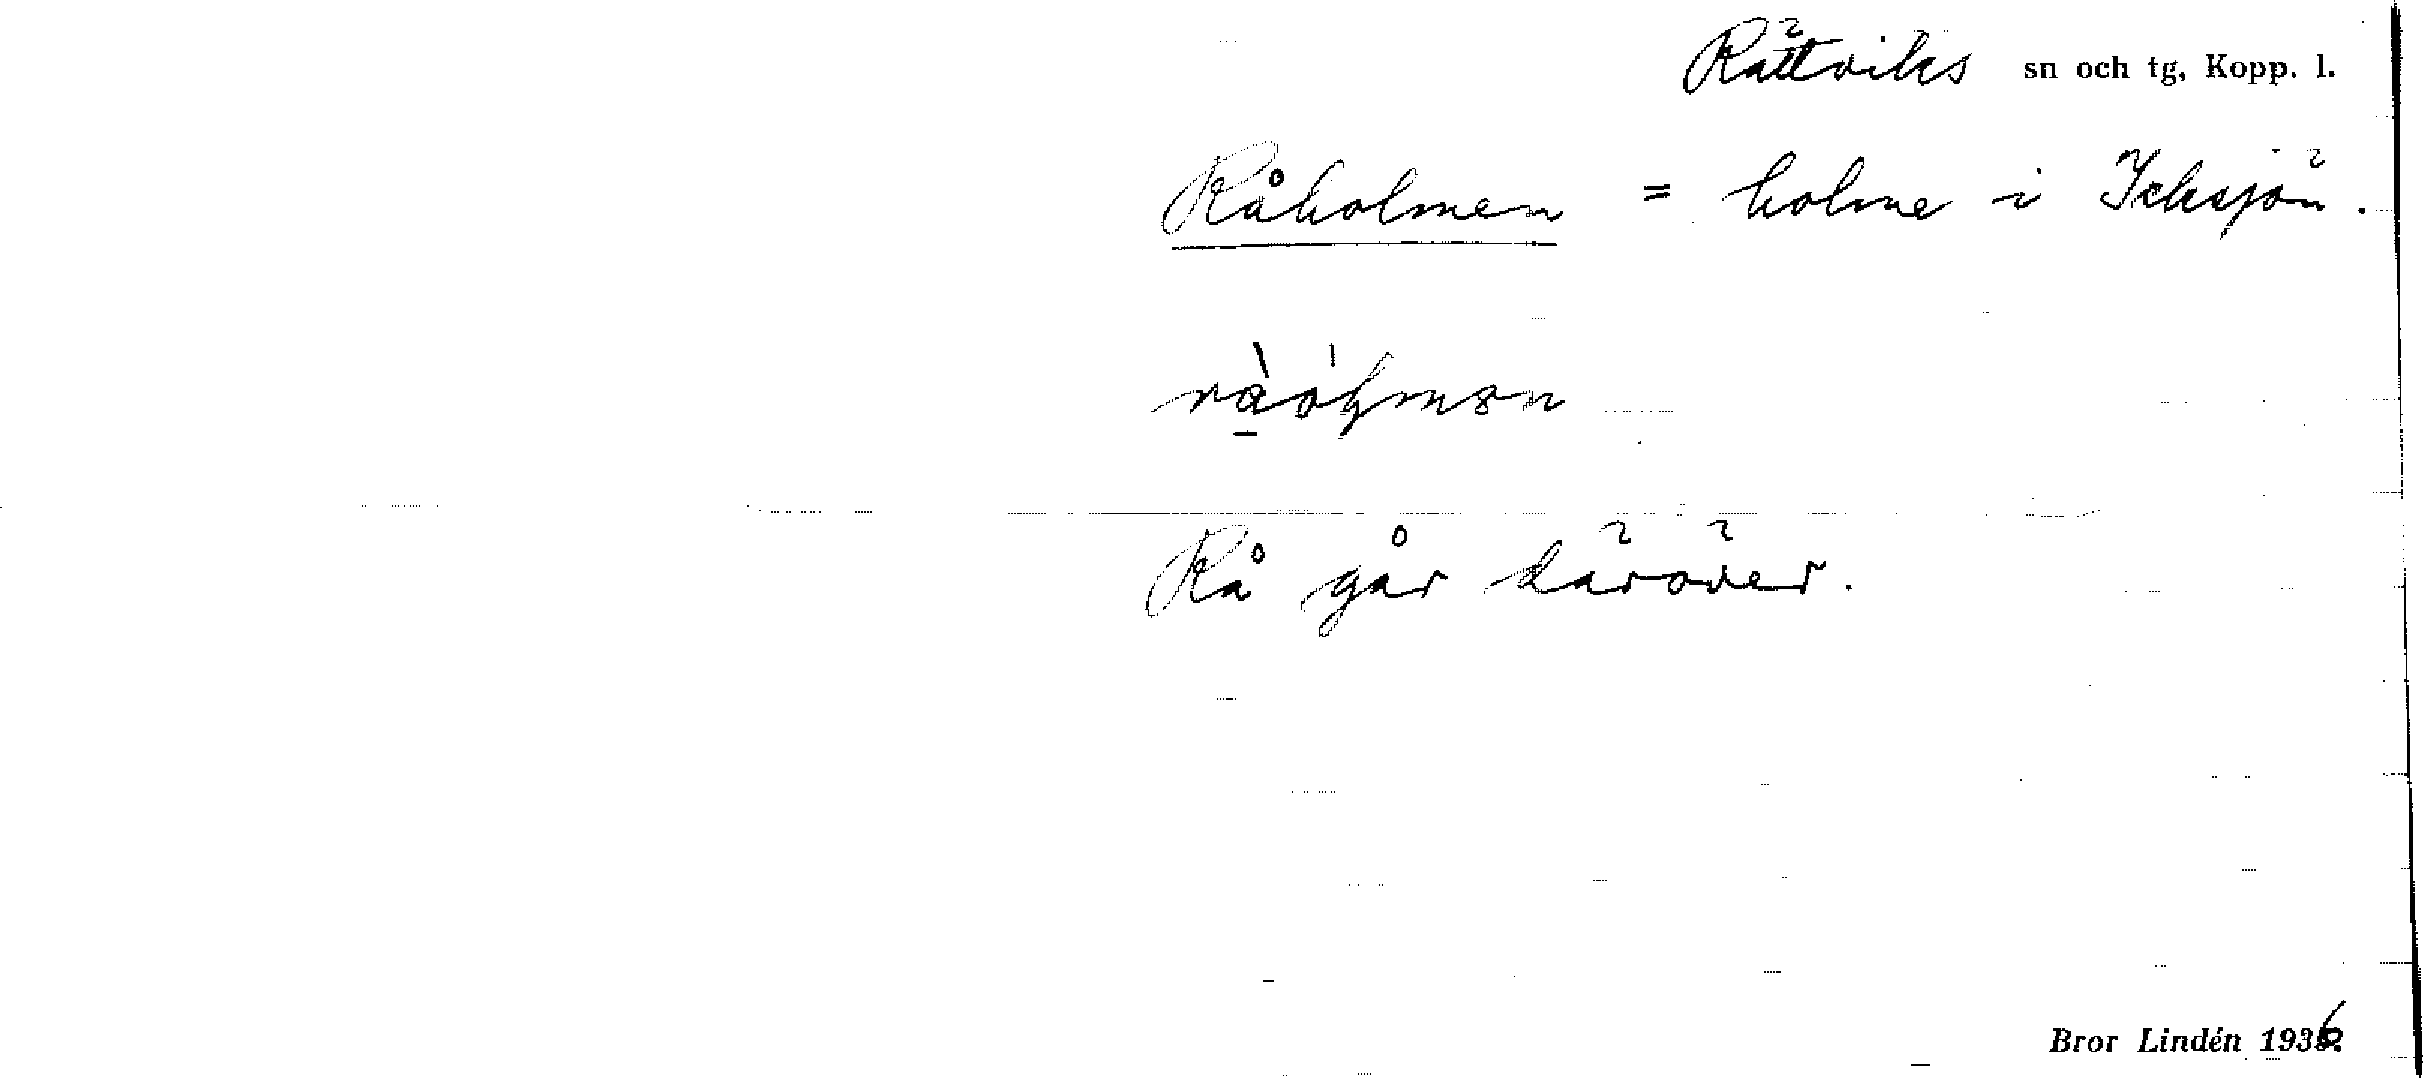 Rättviks sn och tg, Kopp. l.
Råholmen = holme i Icksjön.
Rå går däröver.
Bror Lindén 1936